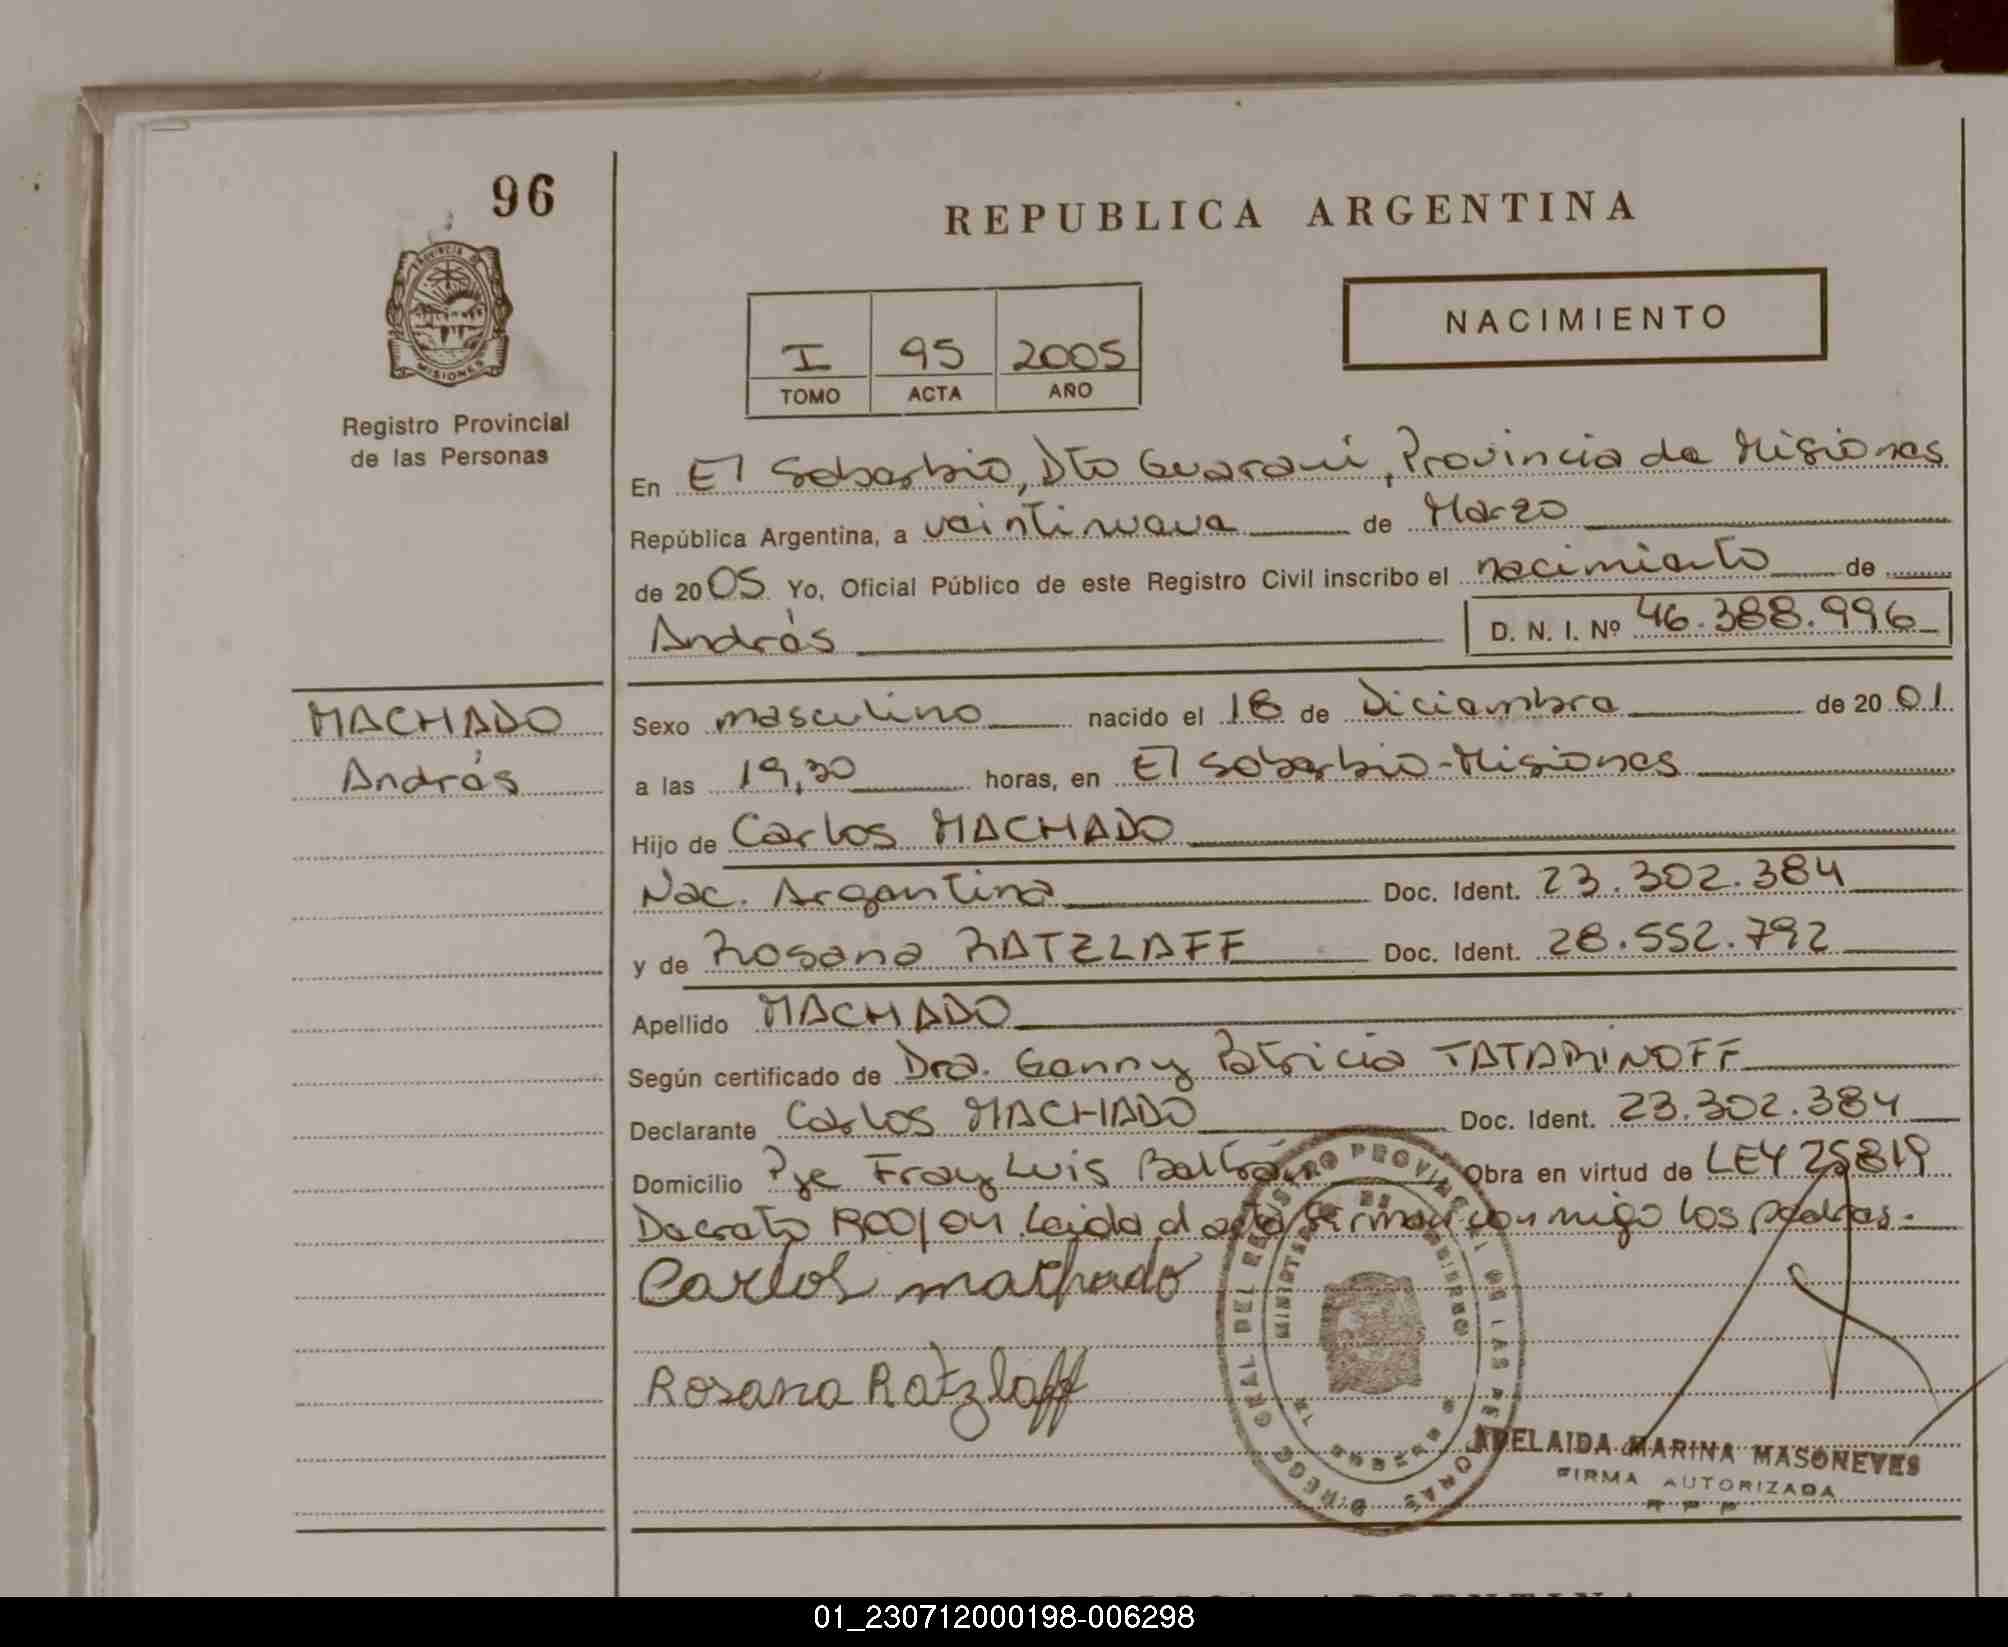 96
REPUBLICA ARGENTINA
PROVINCIA DE
MISIONES
Registro Provincial
de las Personas
NACIMIENTO
I 95 2005
TOMO ACTA AÑO
En El Soberbio, Dto Guaraní, Provincia de Misiones
República Argentina, a veintinueve de Marzo
de 2005 Yo, Oficial Público de este Registro Civil inscribo el nacimiento de
Andrés
D. N. I. Nº 46.388.996
MACHADO
Andrés
Sexo masculino nacido el 18 de Diciembre de 2001
a las 19,30 horas, en El Soberbio-Misiones
Hijo de Carlos MACHADO
Nac. Argentina Doc. Ident. 23.302.384
y de Rosana RATZLAFF Doc. Ident. 28.552.792
Apellido MACHADO
Según certificado de Dra. Genny Patricia TATARINOFF
Declarante Carlos MACHADO Doc. Ident. 23.302.384
Domicilio Pje Fray Luis Beltrán Obra en virtud de LEY 25819
Decreto 1800/04. Leida el acta firman conmigo los padres.
Carlos machado
Rosana Ratzlaff
DIREcc GRAL DEL REGISTRO PROVINCIAL DE LAS PERSONAS
MINISTERIO DE GOBIERNO
ADELAIDA MARINA MASONEVES
FIRMA AUTORIZADA
R P P
01_230712000198-006298